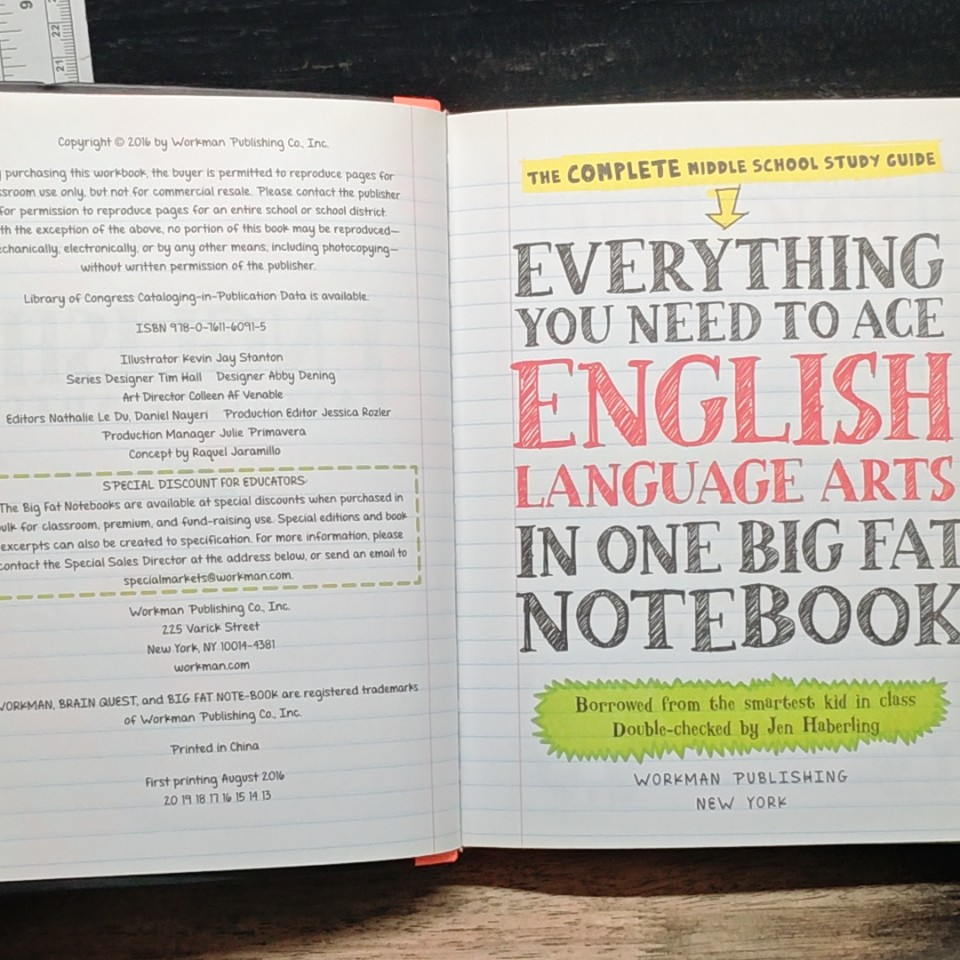 9
22
21
Copyright © 2016 by Workman Publishing Co., Inc.
purchasing this workbook, the buyer is permitted to reproduce pages for
ssroom use only, but not for commercial resale. Please contact the publisher
for permission to reproduce pages for an entire school or school district.
th the exception of the above, no portion of this book may be reproduced—
echanically, electronically, or by any other means, including photocopying—
without written permission of the publisher.
Library of Congress Cataloging-in-Publication Data is available.
ISBN 978-0-7611-6091-5
Illustrator Kevin Jay Stanton
Series Designer Tim Hall Designer Abby Dening
Art Director Colleen AF Venable
Editors Nathalie Le Du, Daniel Nayeri Production Editor Jessica Rozler
Production Manager Julie Primavera
Concept by Raquel Jaramillo
SPECIAL DISCOUNT FOR EDUCATORS
The Big Fat Notebooks are available at special discounts when purchased in
ulk for classroom, premium, and fund-raising use. Special editions and book
excerpts can also be created to specification. For more information, please
contact the Special Sales Director at the address below, or send an email to
specialmarkets@workman.com.
Workman Publishing Co., Inc.
225 Varick Street
New York, NY 10014-4381
workman.com
WORKMAN, BRAIN QUEST, and BIG FAT NOTE-BOOK are registered trademarks
of Workman Publishing Co., Inc.
Printed in China
First printing August 2016
20 19 18 17 16 15 14 13
THE COMPLETE MIDDLE SCHOOL STUDY GUIDE
EVERYTHING
YOU NEED TO ACE
ENGLISH
LANGUAGE ARTS
IN ONE BIG FAT
NOTEBOOK
Borrowed from the smartest kid in class
Double-checked by Jen Haberling
WORKMAN PUBLISHING
NEW YORK